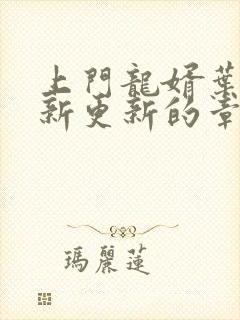 上門龍婿葉
新更新的章
瑪麗蓮